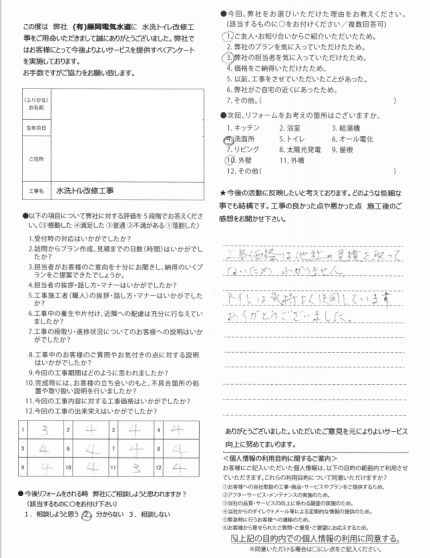 この度は 弊社 (有)藤岡電気水道に 水洗トイレ改修工
事をご用命いただきまして誠にありがとうございました。弊社で
はお客様にとって今後よりよいサービスを提供すべくアンケート
を実施しております。
お手数ですがご協力をお願い致します。
(ふりがな)
お名前
生年月日
ご住所
工事名 水洗トイレ改修工事
●以下の項目について弊社に対する評価を5段階でお答えくださ
い。(⑤感動した ④満足した ③普通 ②不満がある ①落胆した)
1.受付時の対応はいかがでしたか?
2.訪問からプラン作成、見積までの日数(時間)はいかがでし
たか?
3.担当者がお客様のご意向を十分にお聞きし、納得のいくプ
ランをご提案できたでしょうか。
4.担当者の挨拶・話し方・マナーはいかがでしたか?
5.工事施工者(職人)の挨拶・話し方・マナーはいかがでした
か?
6.工事中の養生や片付け、近隣への配慮は充分に行なえてい
ましたか?
7.工事の段取り・進捗状況についてのお客様への説明はいか
がでしたか?
8.工事中のお客様のご質問やお気付きの点に対する説明
はいかがでしたか?
9.今回の工事期間はどのように思われましたか?
10.完成時には、お客様の立ち会いのもと、不具合箇所の処
置や取り扱い説明を行いましたか?
11.今回の工事内容に対する工事価格はいかがでしたか?
12.今回の工事の出来栄えはいかがでしたか?
1 3 2 4 3 4 4 4
5 4 6 4 7 4 8 4
9 4 10 4 11 3 12 4
●今後リフォームをされる時 弊社にご相談しようと思われますか?
(該当するものに○をお付け下さい)
1. 相談しようと思う 2. 分からない 3. 相談しない
●今回、弊社をお選びいただけた理由をお教えください。
(該当するものに○をお付けください/複数回答可)
1.ご友人・お知り合いからご紹介いただいたため。
2.弊社のプランを気に入っていただけたため。
3.弊社の担当者を気に入っていただけたため。
4.価格をご納得いただけたため。
5.以前、工事をさせていただいたことがあった。
6.弊社がご自宅の近くにあったため。
7.その他。( )
●次回、リフォームをお考えの箇所はございますか。
1.キッチン 2.浴室 3.給湯機
4.洗面所 5.トイレ 6.オール電化
7.リビング 8.太陽光発電 9.屋根
10.外壁 11.外構
12.その他( )
★今後の活動に反映したいと考えております。どのような些細な
事でも結構です。工事の良かった点や悪かった点 施工後のご
感想をお聞かせ下さい。
工事価格は他社の見積を取って
ないため わかりません。
トイレは気持よく使用しています
ありがとうございました。
ありがとうございました。いただいたご意見を元によりよいサービス
向上に努めてまいります。
<個人情報の利用目的に関するご案内>
お客様にご記入いただいた個人情報は、以下の目的の範囲内で利用させ
ていただきます。これらの利用目的について同意いただけますか?
①お客様への当社取扱の工事・商品・サービスやプランをご提供するため。
②アフターサービス・メンテナンスの実施のため。
③当社の品質・サービスの向上に係わる調査の実施のため。
④当社からのダイレクトメール等による定期的な情報の提供のため。
⑤緊急時に行うお客様への連絡のため。
⑥お客様から寄せられたご質問・ご意見・ご要望にお応えするため。
上記の目的内での個人情報の利用に同意する。
※同意いただける場合は□にレ点をご記入ください。